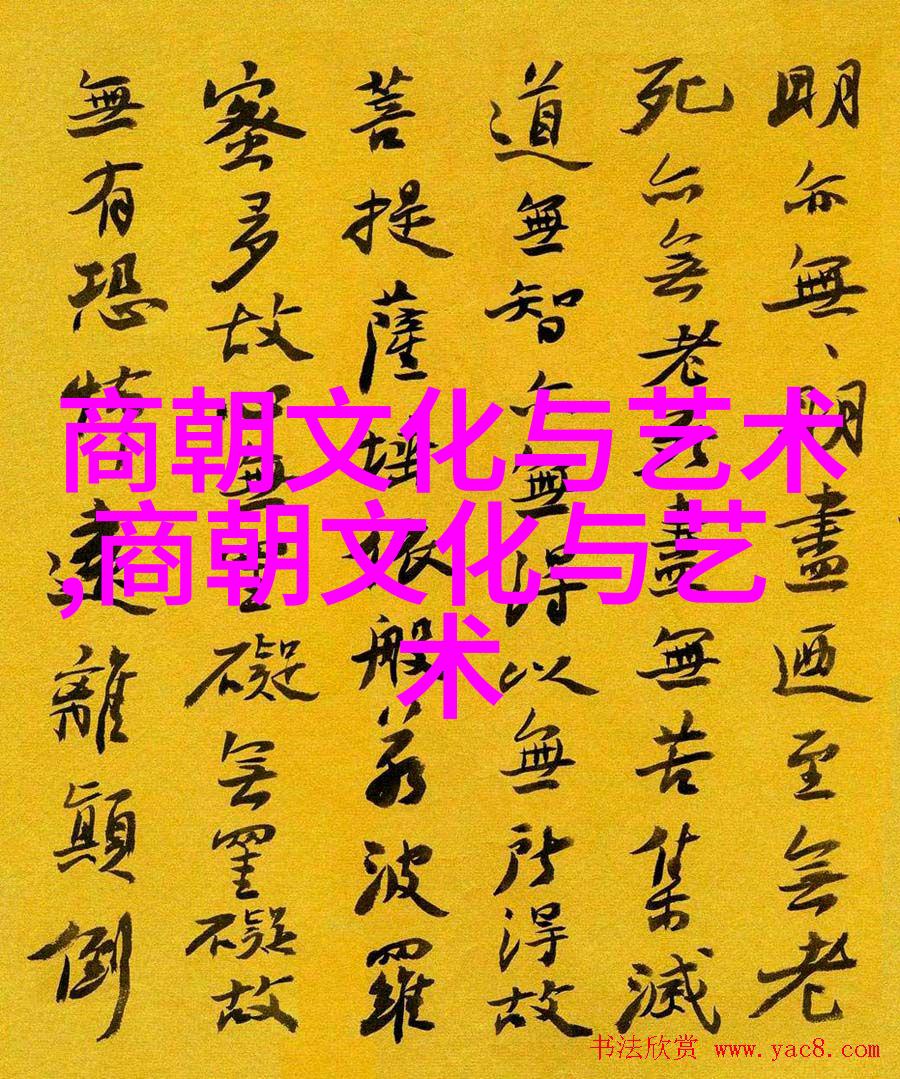 明亦無、明盡迺至無老
死亦無老死盡無苦集滅
道無智亦無得以無所得故
菩提薩埵依般若波羅
蜜多故心無罣礙無罣礙故
無有恐怖遠離顛倒
商朝文化与艺术
,商朝文化与艺
术
书法欣赏 www.yac8.com